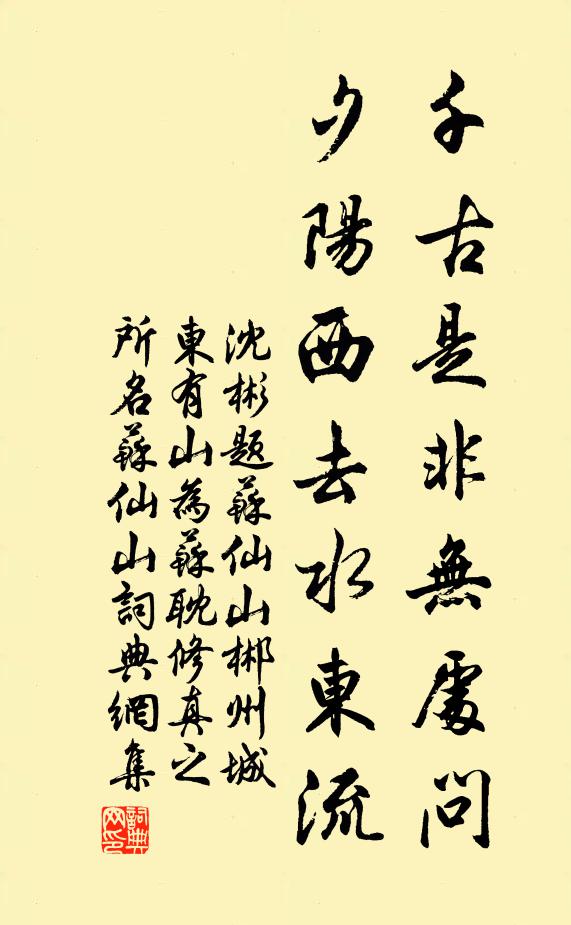 千古是非無處問
夕陽西去水東流
沈彬題蘇仙山郴州城
東有山為蘇耽修真之
所名蘇仙山詞典網集
詞典
网印